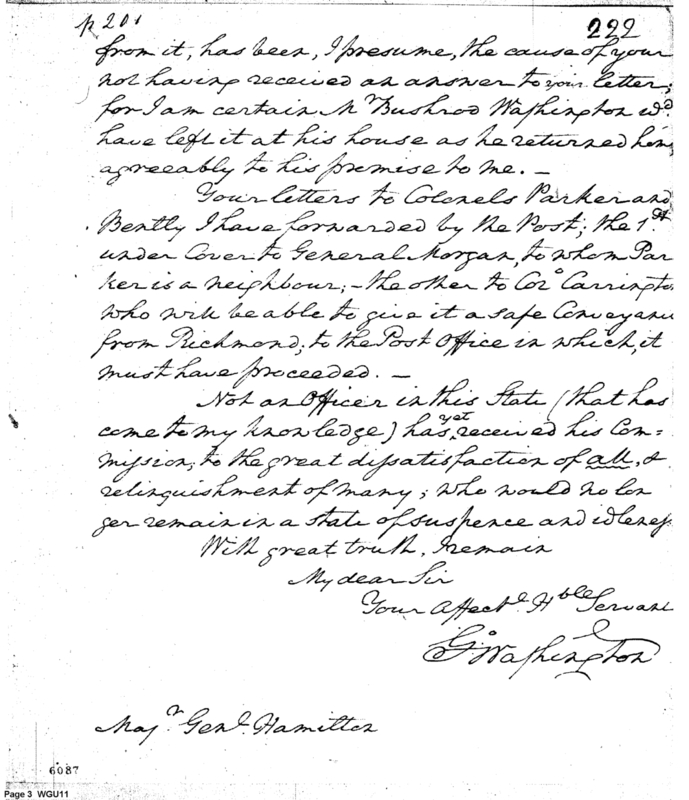 p 201
222
from it, has been, I presume, the cause of your
not having received an answer to your letter;
for I am certain Mr Bushrod Washington wd
have left it at his house as he returned home
agreeably to his promise to me. —
Your letters to Colonels Parker and
Bently I have forwarded by the Post; the 1st
under Cover to General Morgan, to whom Par
ker is a neighbour; — the other to Colo Carrington
who will be able to give it a safe Conveyance
from Richmond; to the Post Office in which, it
must have proceeded. —
Not an Officer in this State (that has
come to my knowledge) has yet received his Com=
mission; to the great dissatisfaction of all, &
relinquishment of many; who would no lon
ger remain in a state of suspence and idleness
With great truth, I remain
My dear Sir
Your Affecte Hble Servant
Go Washington
Majr Genl Hamilton
6087
Page 3 WGU11